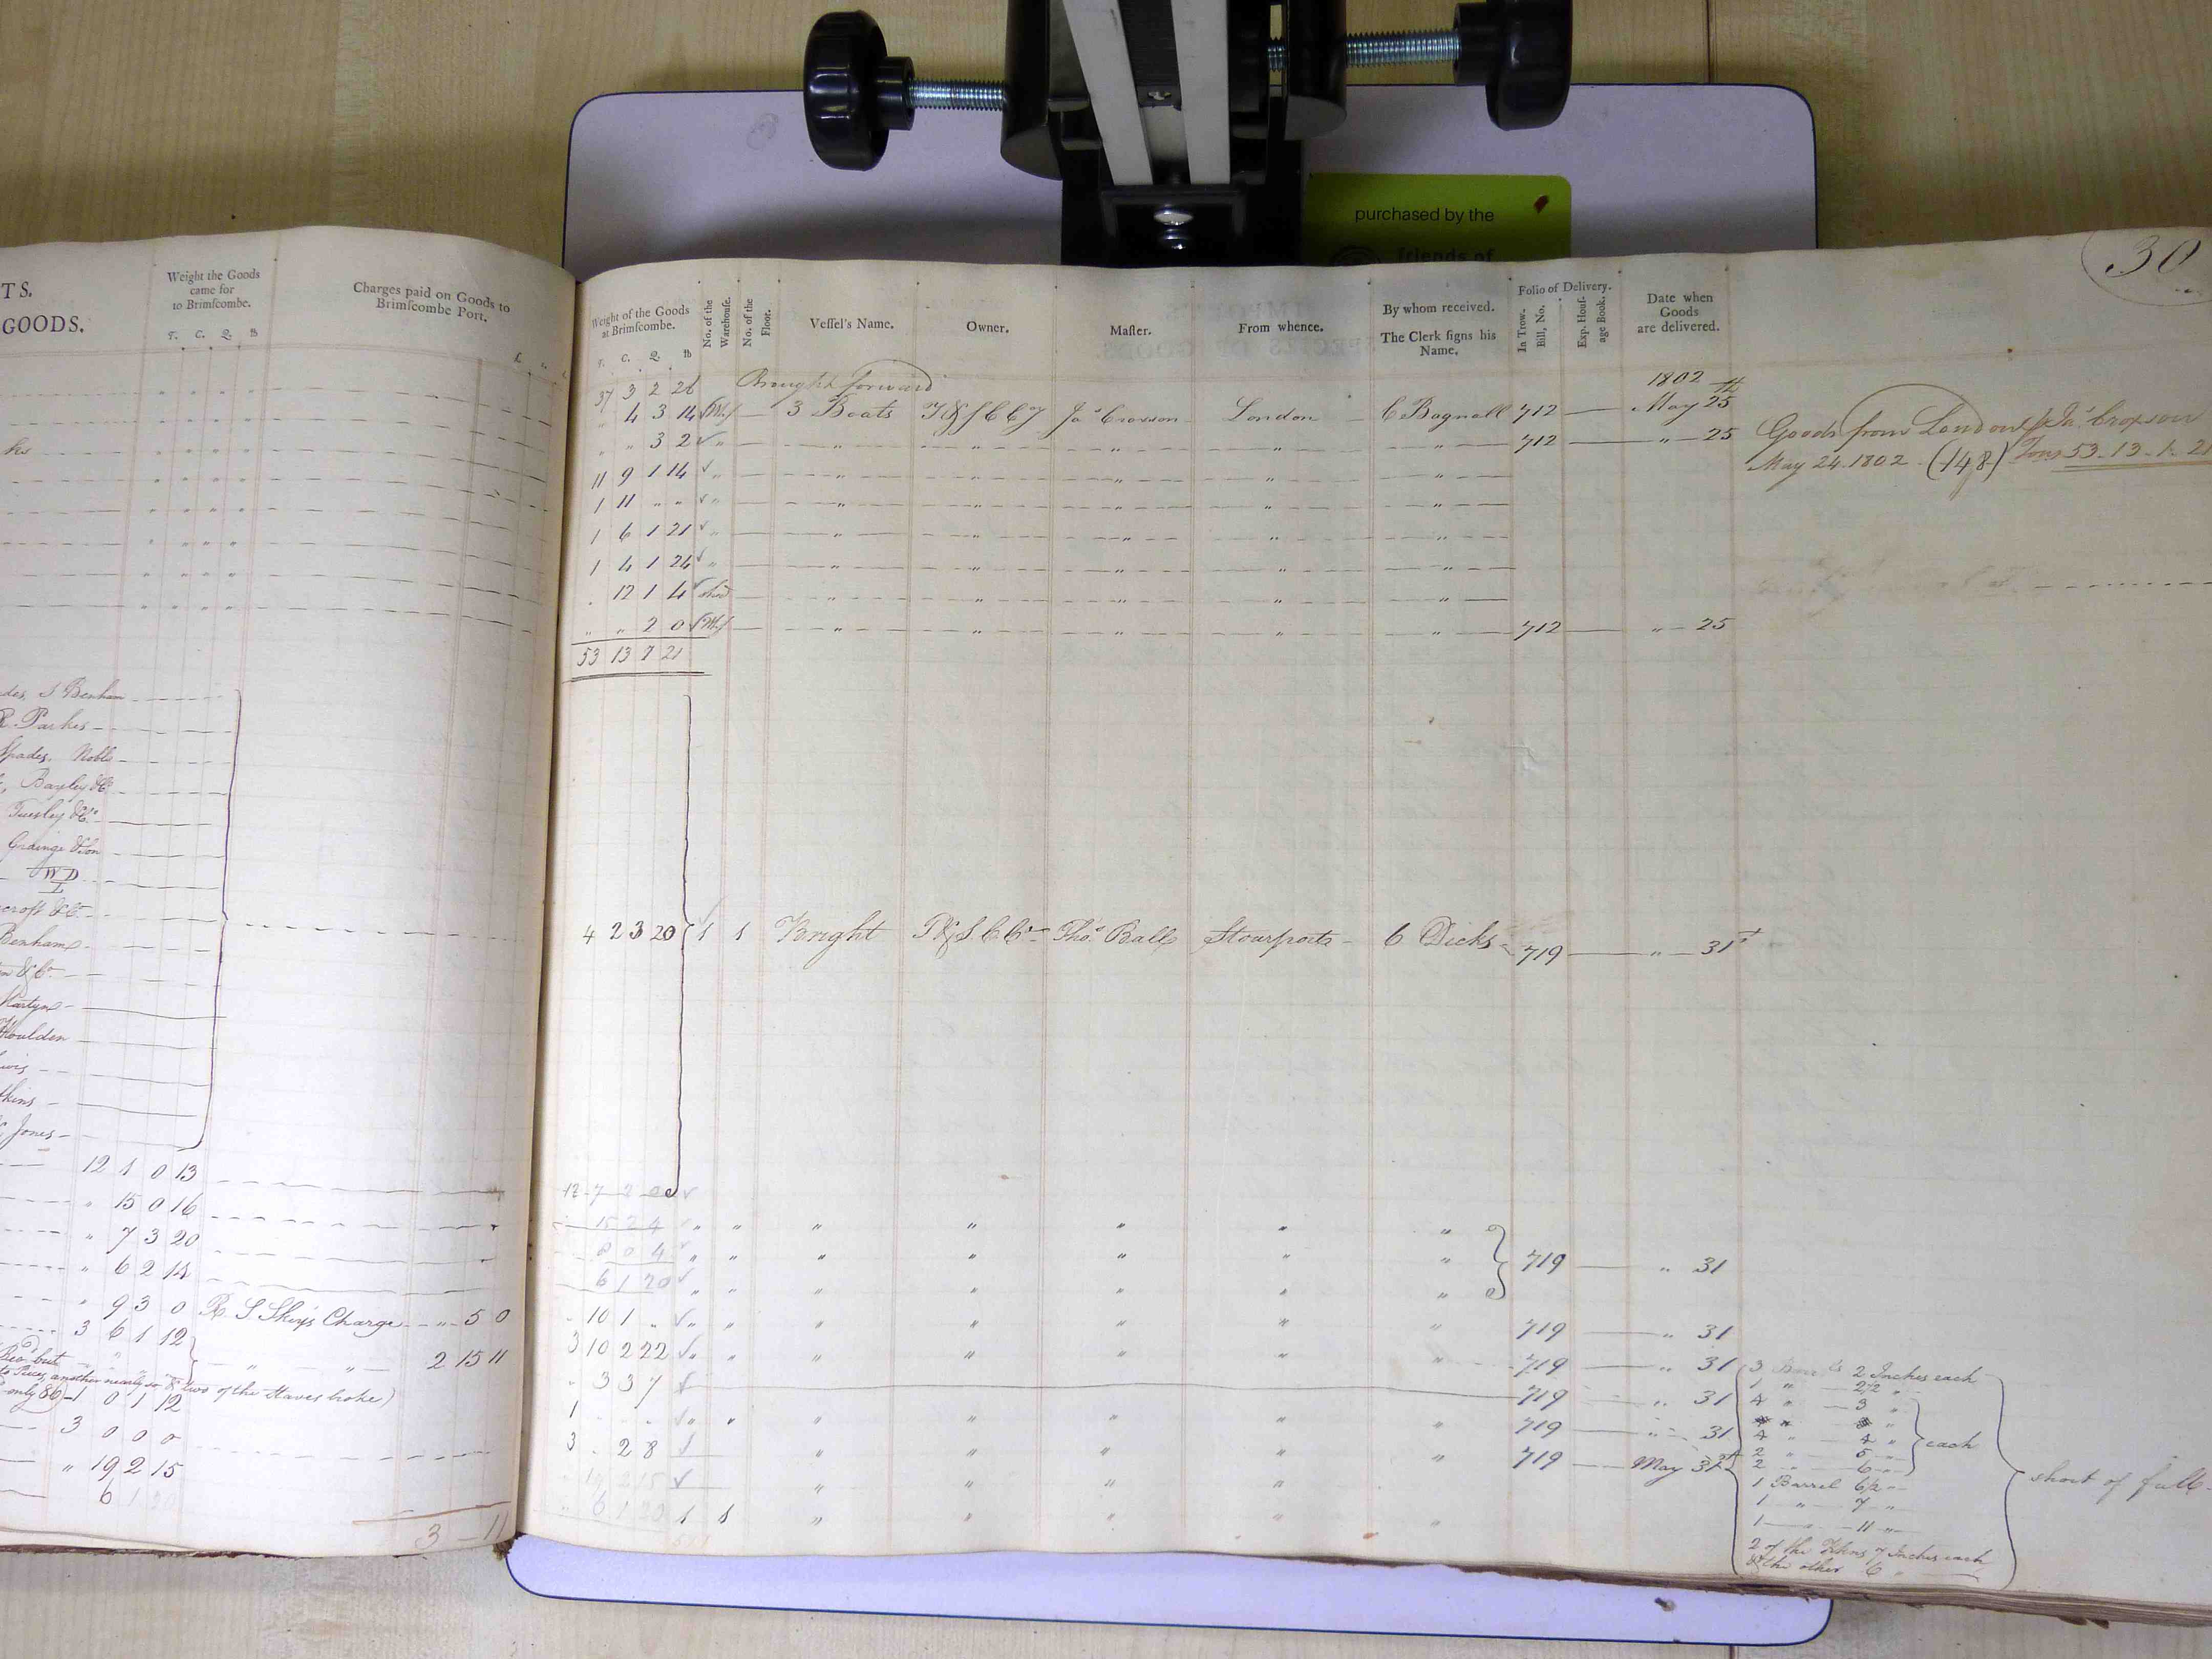 purchased by the
friends of
30
TS.
GOODS.
Weight the Goods
came for
to Brimſcombe.
T. C. Q. lb
Charges paid on Goods to
Brimſcombe Port.
£
S Benham
R. Parkes
Spades. Noble
Bayley &Co
Tuesley &Co
Grainge &Son
WD
croft &Co
Benham
n &Co
Martyn
Houlden
kins
Jones
12 1 0 13
" 15 0 16
" 7 3 20
" 6 2 14
" 9 3 0 R. S Skeys Charge " 5 0
3 6 1 12
" " 2 15 11
Rec'd but
to Pieces, another nearly so & two of the Staves broke)
only 86) 1 0 1 12
3 0 0 0
" 19 2 15
6 1 20
3 - 11
Weight of the Goods
at Brimſcombe.
T. C. Q. lb
No. of the
Warehouſe.
No. of the
Floor.
Veſſel's Name.
Owner.
Maſter.
From whence.
By whom received.
The Clerk ſigns his
Name.
Folio of Delivery.
In Trow-
Bill, No.
Exp. Houſ-
age Book.
Date when
Goods
are delivered.
37 3 2 26 Brought forward 1802
" 4 3 14 3 Boats T&J C Coy Jas Croxson London C Bagnall 712 May 25th
" " 3 2 " " " " " " " 712 " 25
11 9 1 14 " " " " " "
1 11 " " " " " " " "
1 6 1 21 " " " " " "
1 4 1 26 " " " " " "
. 12 1 4 shed " " " " "
" " 2 0 " " " " " 712 " 25
53 13 1 21
Goods from London Jas Croxson
May 24. 1802 (148) Tons 53-13-1-21
4 2 3 20 1 1 Knight T&J C Co Thos Ball Stourport 6 Dicks 719 " 31st
12 7 2
15 2 4 " " " " " " "
8 0 4 " " " " " " " 719 " 31
6 1 20 " " " " " " "
" 10 1 " " " " " " " " 719 " 31
3 10 2 22 " " " " " " " 719 " 31
" 3 3 7 719 " 31
1 . . . " " " " " " " 719 " 31
3 . 2 8 " " " " " 719 May 31st
19 2 15 " " "
6 1 20 1 1 " " " " "
3 Barrels 2 Inches each
1 " 2 1/2 "
4 " 3 "
4 " 4 "
2 " 5 "
2 " 6 "
each
1 Barrel 6 1/2 "
1 " 7 "
1 " 11 "
2 of the 7 Inches each
& the other 6 "
short of full